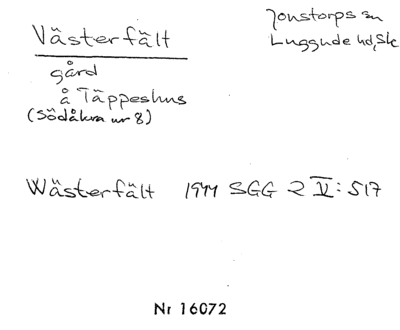 Västerfält
Jonstorps sn
Luggude hd, Sk
gård
å Täppeshus
(Södåkra nr 8)
Wästerfält 1944 SGG 2 IV: 517
Nr 16072